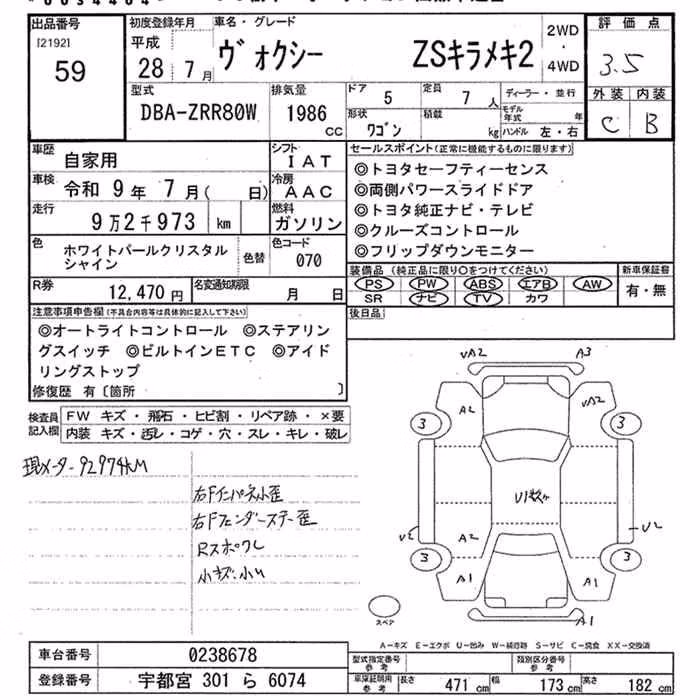 出品番号
[2192]
59
初度登録年月
平成
28 年 7 月
車名・グレード
ヴォクシー ZSキラメキ2
2WD
・
4WD
評価点
3.5
外装 内装
C B
型式
DBA-ZRR80W
排気量
1986
CC
ドア 5
定員 7 人
形状 ワゴン
積載 kg
ディーラー・並行
モデル年式 年
ハンドル 左・右
車歴 自家用
シフト IAT
車検 令和 9 年 7 月( 日)
冷房 AAC
走行 9万2千973 km
燃料 ガソリン
色 ホワイトパールクリスタルシャイン
色替
色コード 070
R券 12,470 円
名変通知期限 月 日
セールスポイント(正常に機能するものに限ります)
◎トヨタセーフティーセンス
◎両側パワースライドドア
◎トヨタ純正ナビ・テレビ
◎クルーズコントロール
◎フリップダウンモニター
装備品(純正品に限り○をつけてください)
PS PW ABS エアB AW
SR ナビ TV カワ
新車保証書
有・無
後日品
注意事項申告欄(不具合内容等は具体的に記入して下さい)
◎オートライトコントロール ◎ステアリン
グスイッチ ◎ビルトインETC ◎アイド
リングストップ
修復歴 有〔箇所 〕
検査員記入欄
FW キズ・飛石・ヒビ割・リペア跡・×要
内装 キズ・汚レ・コゲ・穴・スレ・キレ・破レ
現メーター92974KM
右Fインパネ小歪
右Fフェンダーステー歪
小キズ・小凹
VA2 A3
A2 VA2
3 3
U1数ヶ
A2
V2
3 3
A1 A1
A1
スペア
A-キズ E-エクボ U-凹み W-補修跡 S-サビ C-腐食 XX-交換済
車台番号 0238678
登録番号 宇都宮 301 ら 6074
型式指定番号 参考
類別区分番号 参考
車庫証明用 参考
長さ 471 cm 幅 173 cm 高さ 182 cm